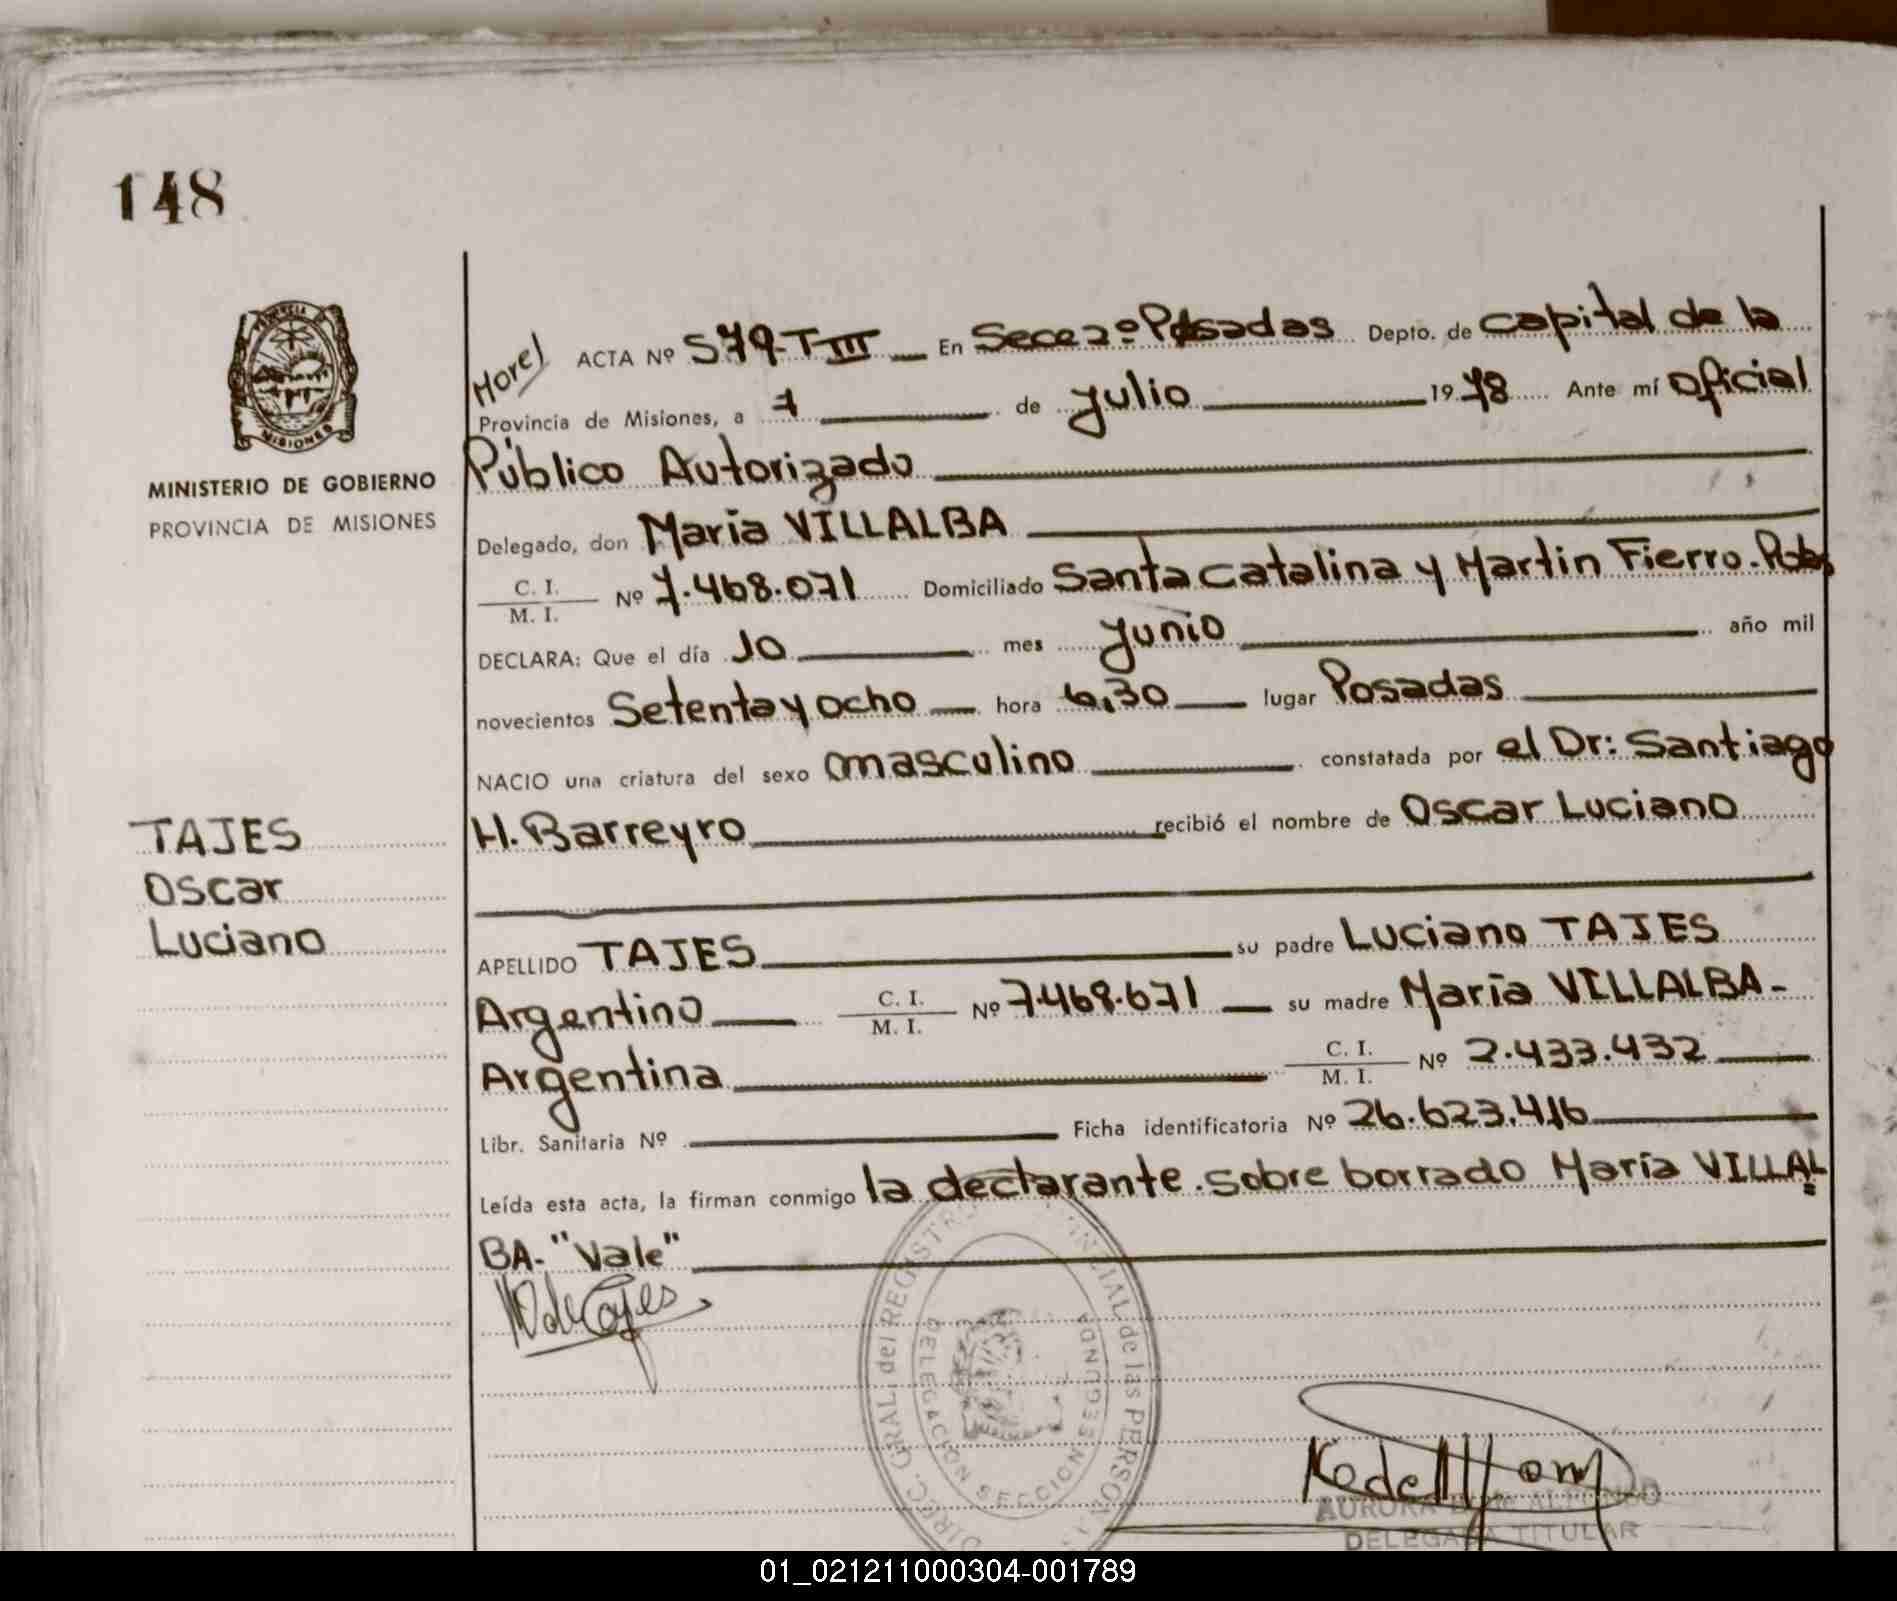 148
MINISTERIO DE GOBIERNO
PROVINCIA DE MISIONES
TAJES
Oscar
Luciano
Morel
ACTA Nº 579-T III En Secc 2º Posadas Depto. de Capital de la
Provincia de Misiones, a 7 de Julio 1978 Ante mí Oficial
Público Autorizado
Delegado, don María VILLALBA
C. I. / M. I. Nº 7.468.071 Domiciliado Santa Catalina y Martin Fierro - Pdas
DECLARA: Que el día 10 mes Junio año mil
novecientos Setenta y ocho hora 6,30 lugar Posadas
NACIO una criatura del sexo masculino constatada por el Dr: Santiago
H. Barreyro recibió el nombre de Oscar Luciano
APELLIDO TAJES su padre Luciano TAJES
Argentino C. I. / M. I. Nº 7.468.671 su madre María VILLALBA -
Argentina C. I. / M. I. Nº 2.433.432
Libr. Sanitaria Nº Ficha identificatoria Nº 26.623.416
Leída esta acta, la firman conmigo la declarante. Sobre borrado María VILLAL=
BA- "Vale"
DIREC. GRAL. del REGISTRO PROVINCIAL de las PERSONAS
DELEGACION SECCION SEGUNDA
AURORA ALFONSO
DELEGADA TITULAR
01_021211000304-001789